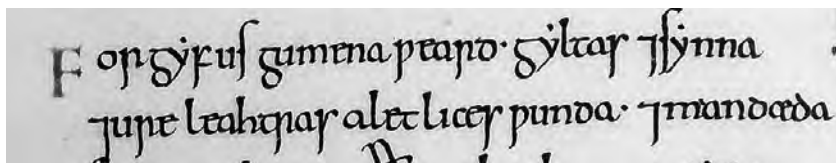 Forgẏf us gumena ƿeard· gẏltas ⁊ sẏnna
⁊ ure leahtras alet lices ƿunda· ⁊ mandæda